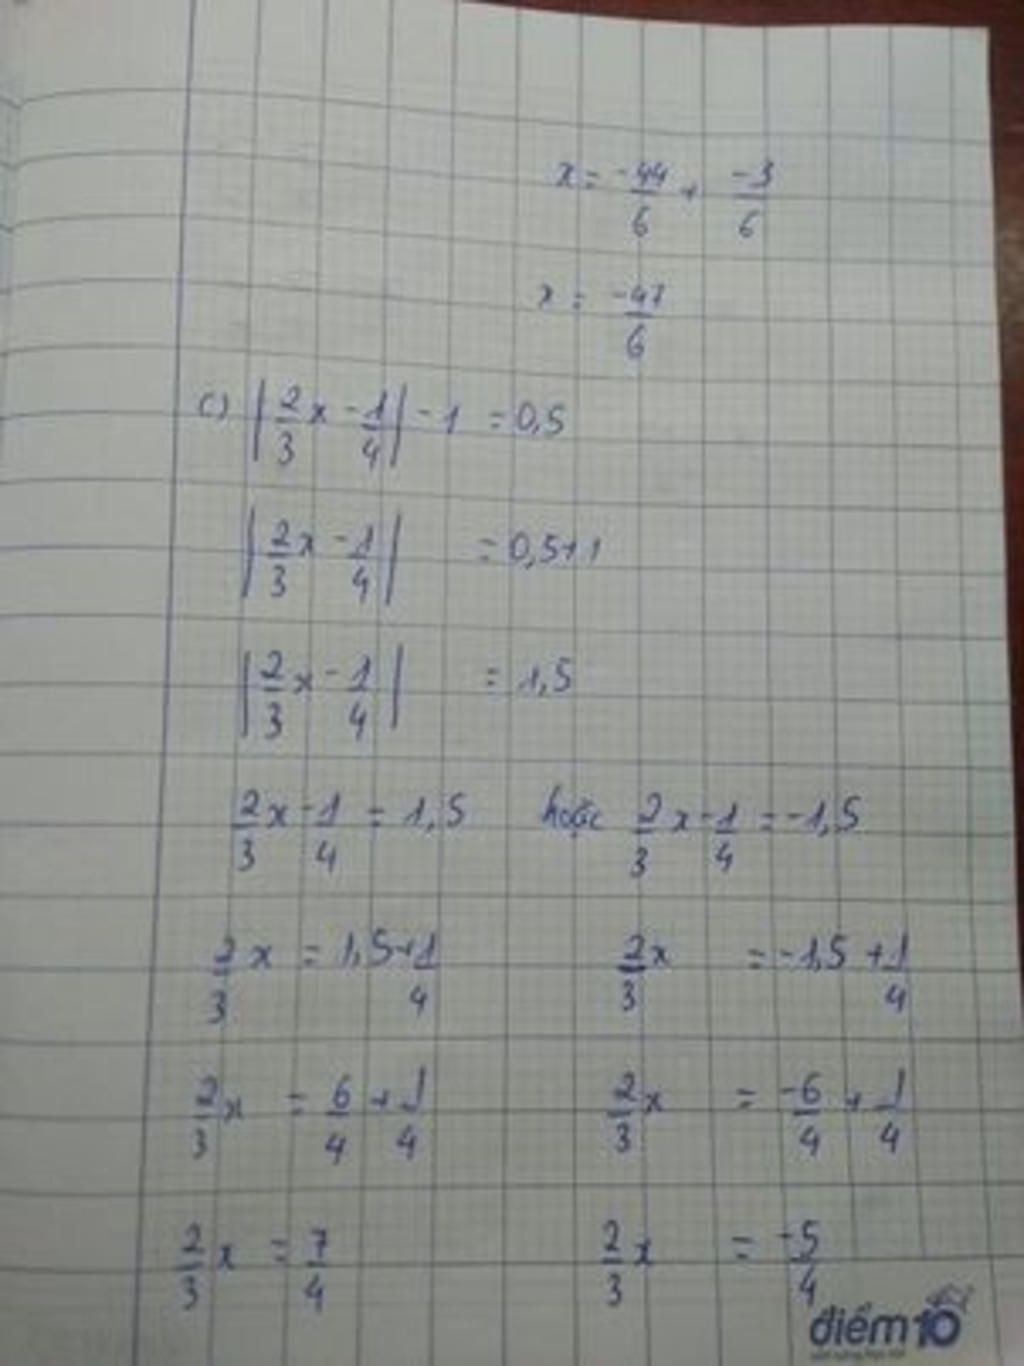 x = -44/6 + -3/6
x = -47/6
c) |2/3 x - 1/4| - 1 = 0,5
|2/3 x - 1/4| = 0,5+1
|2/3 x - 1/4| = 1,5
2/3 x - 1/4 = 1,5 hoặc 2/3 x - 1/4 = -1,5
2/3 x = 1,5 + 1/4 2/3 x = -1,5 + 1/4
2/3 x = 6/4 + 1/4 2/3 x = -6/4 + 1/4
2/3 x = 7/4 2/3 x = -5/4
điểm 10